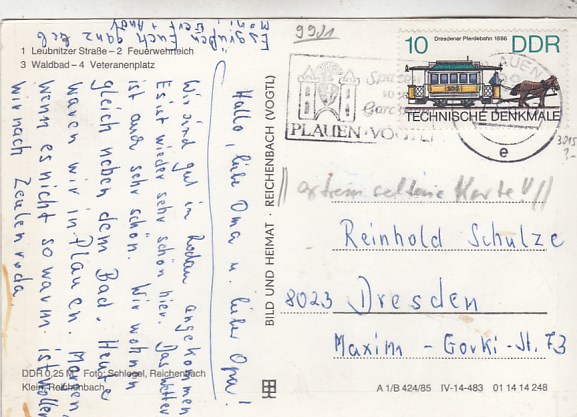 1 Leubnitzer Straße – 2 Feuerwehrteich
3 Waldbad – 4 Veteranenplatz
Hallo, liebe Oma u. lieber Opa!
Wir sind gut in Rodau angekommen
Es ist wieder sehr schön hier. Das Wetter
ist auch sehr schön. Wir wohnen
gleich neben dem Bad. Heute
waren wir in Plauen. Morgen,
wenn es nicht so warm ist wollen
wir nach Zeulenroda
Es grüßen Euch ganz lieb
DDR 0,25 M Foto: Schlegel, Reichenbach
Klein, Reichenbach
BILD UND HEIMAT · REICHENBACH (VOGTL)
9931
PLAUEN · VOGTL
10 Dresdener Pferdebahn 1886 DDR
TECHNISCHE DENKMALE
e
// extrem seltene Karte! //
Reinhold Schulze
8023 Dresden
Maxim-Gorki-St. 73
A 1/B 424/85 IV-14-483 01 14 14 248